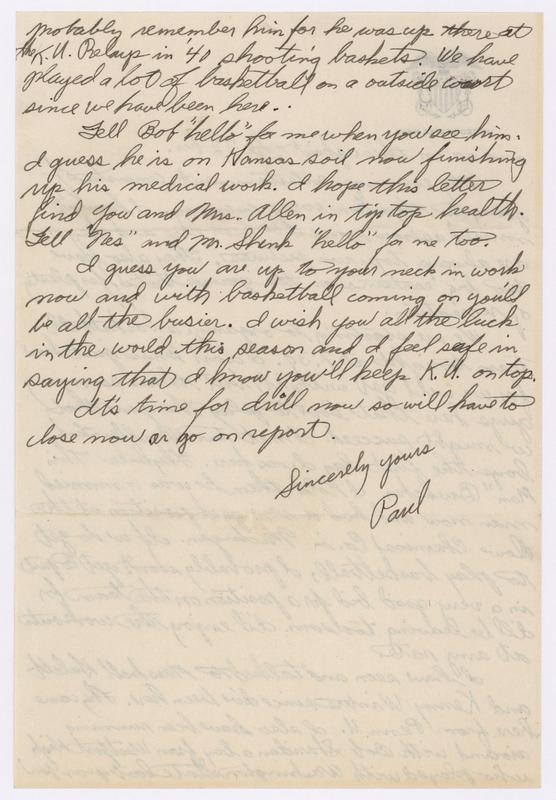 probably remember him for he was up there at
the K.U. Relays in 40 shooting baskets. We have
played a lot of basketball on a outside court
since we have been here..
Tell Bob "hello" for me when you see him.
I guess he is on Kansas soil now finishing
up his medical work. I hope this letter
find you and Mrs. Allen in tip top health.
Tell "Nes" and Mr. Shenk "hello" for me too.
I guess you are up to your neck in work
now and with basketball coming on you'll
be all the busier. I wish you all the luck
in the world this season and I feel safe in
saying that I know you'll keep K.U. on top.
It's time for drill now so will have to
close now or go on report.
Sincerely yours
Paul